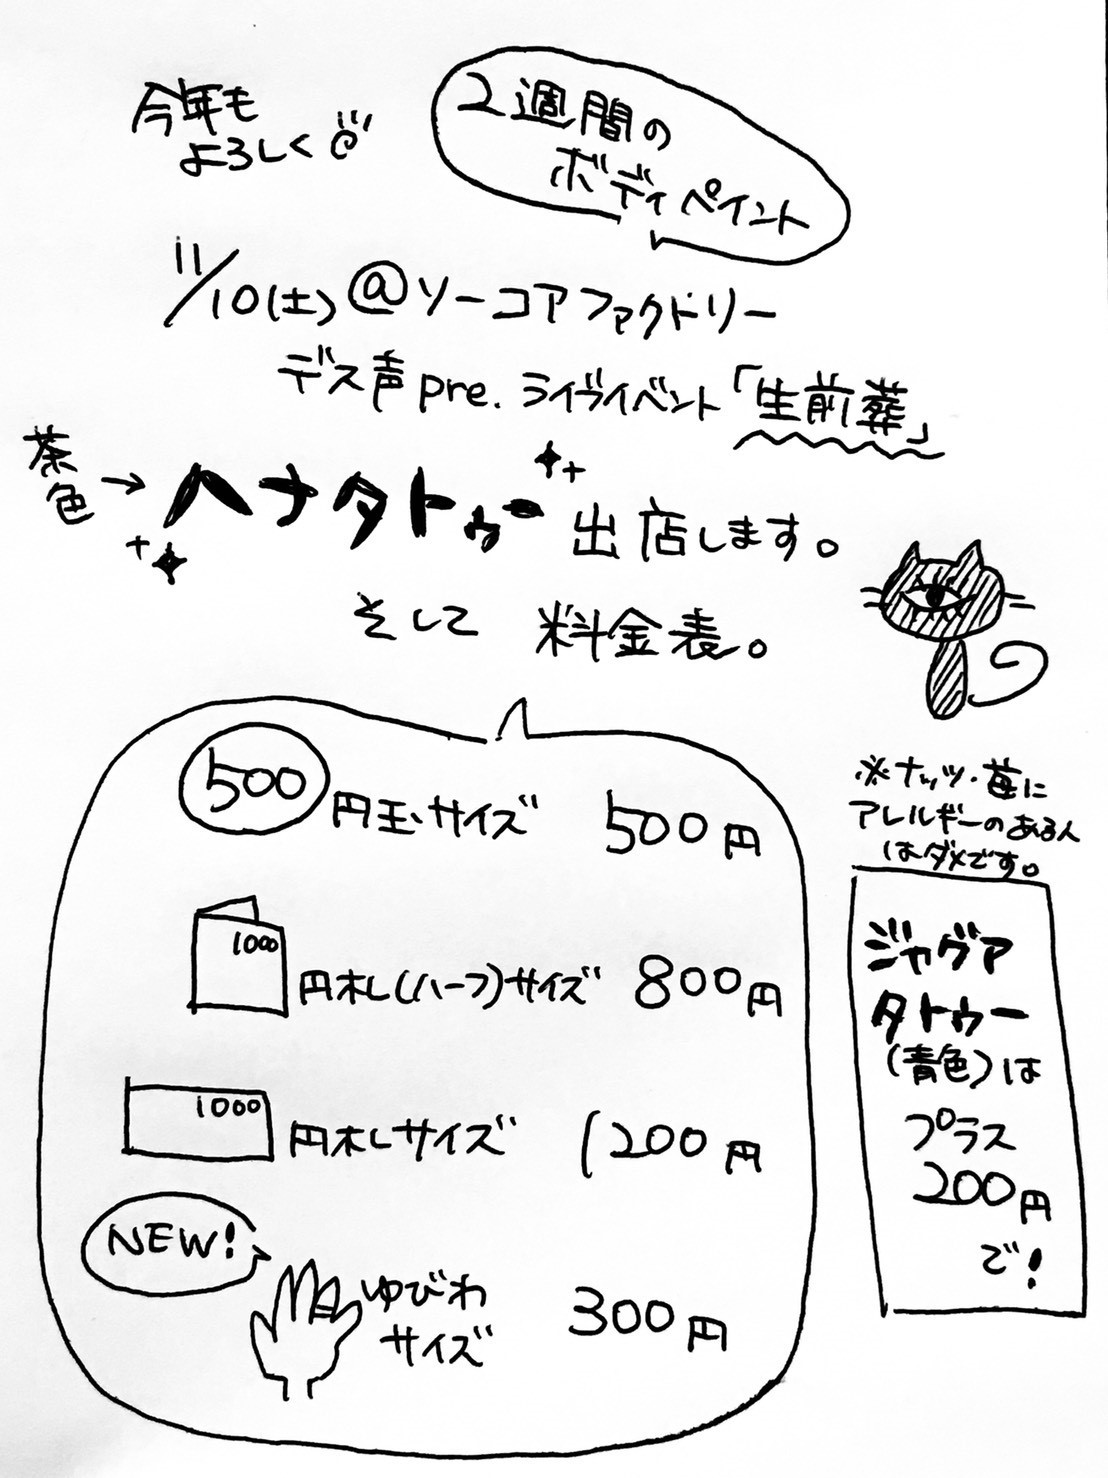 今年も
よろしく
2週間の
ボディペイント
11/10(土)@ソーコアファクトリー
デス声pre.ライヴイベント「生前葬」
茶色→ヘナタトゥー出店します。
そして 料金表。
500円玉サイズ 500円
1000円札(ハーフ)サイズ 800円
1000円札サイズ 1200円
NEW!
ゆびわ
サイズ 300円
※ナッツ・苺に
アレルギーのある人
はダメです。
ジャグア
タトゥー
(青色)は
プラス
200円
で!